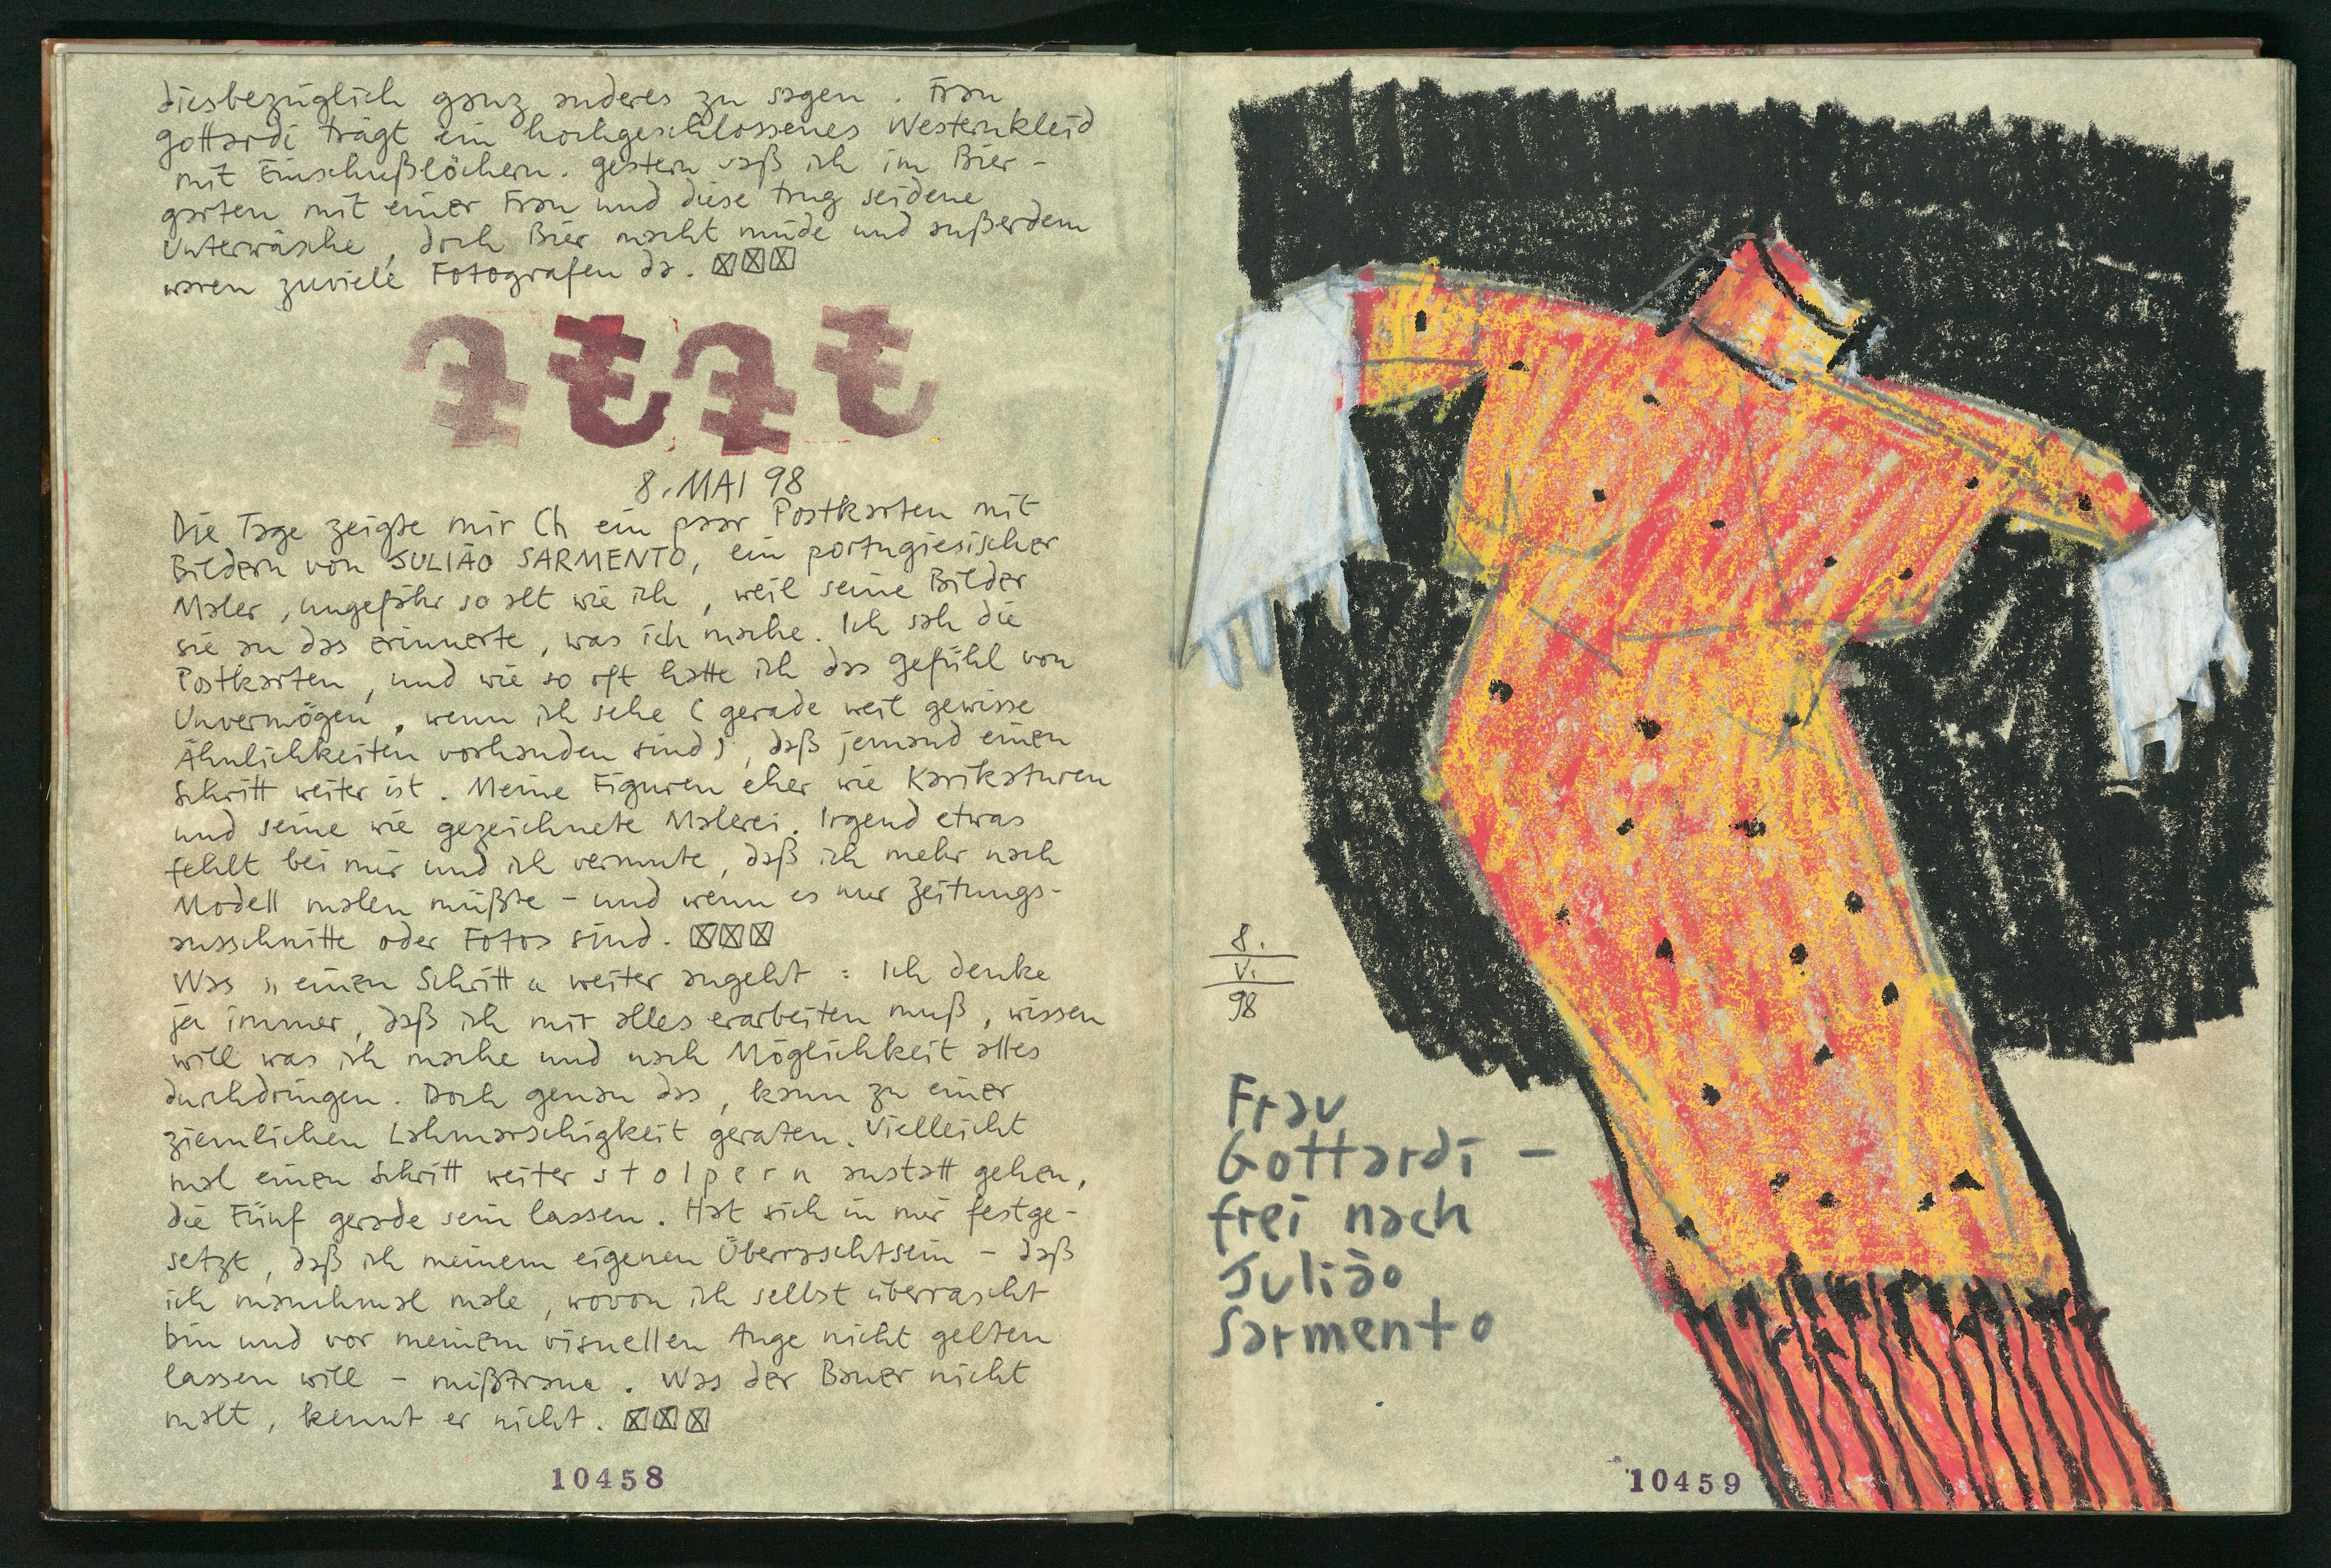 diesbezüglich ganz anderes zu sagen. Frau
Gottardi trägt ein hochgeschlossenes Westernkleid
mit Einschußlöchern. Gestern saß ich im Bier-
garten mit einer Frau und diese trug seidene
Unterwäsche, doch Bier macht müde und außerdem
waren zuviele Fotografen da. ☒☒☒
8. MAI 98
Die Tage zeigte mir Ch ein paar Postkarten mit
Bildern von JULIÃO SARMENTO, ein portugiesischer
Maler, ungefähr so alt wie ich, weil seine Bilder
sie an das erinnerte, was ich mache. Ich sah die
Postkarten, und wie so oft hatte ich das Gefühl von
Unvermögen, wenn ich sehe (gerade weil gewisse
Ähnlichkeiten vorhanden sind), daß jemand einen
Schritt weiter ist. Meine Figuren eher wie Karikaturen
und seine wie gezeichnete Malerei. Irgend etwas
fehlt bei mir und ich vermute, daß ich mehr nach
Modell malen müßte - und wenn es nur Zeitungs-
ausschnitte oder Fotos sind. ☒☒☒
Was „einen Schritt“ weiter angeht: Ich denke
ja immer, daß ich mir alles erarbeiten muß, wissen
will was ich mache und nach Möglichkeit alles
durchdringen. Doch genau das, kann zu einer
ziemlichen Lahmarschigkeit geraten. Vielleicht
mal einen Schritt weiter s t o l p e r n anstatt gehen,
die Fünf gerade sein lassen. Hat sich in mir festge-
setzt, daß ich meinem eigenen Überraschtsein - daß
ich manchmal male, wovon ich selbst überrascht
bin und vor meinem visuellen Auge nicht gelten
lassen will - mißtraue. Was der Bauer nicht
malt, kennt er nicht. ☒☒☒
10458
8.
V.
98
Frau
Gottardi -
frei nach
Julião
Sarmento
10459